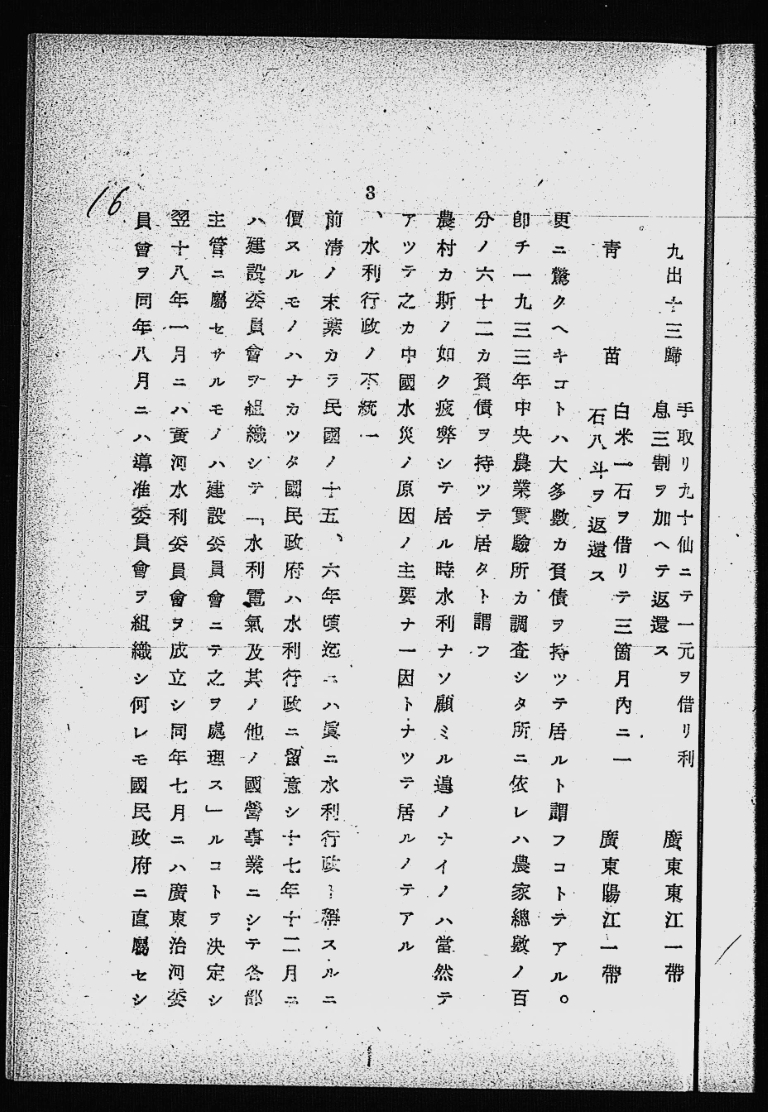 九出十三歸　手取リ九十仙ニテ一元ヲ借リ利　廣東東江一帶
息三割ヲ加ヘテ返還ス
青苗　白米一石ヲ借リテ三箇月內ニ一　廣東陽江一帶
石八斗ヲ返還ス
更ニ驚クヘキコトハ大多數カ負債ヲ持ツテ居ルト謂フコトテアル。
卽チ一九三三年中央農業實驗所カ調査シタ所ニ依レハ農家總數ノ百
分ノ六十二カ負債ヲ持ツテ居タト謂フ
農村カ斯ノ如ク疲弊シテ居ル時水利ナソ顧ミル遑ノナイノハ當然テ
アツテ之カ中國水災ノ原因ノ主要ナ一因トナツテ居ルノテアル
3、水利行政ノ不統一
前淸ノ末葉カラ民國ノ十五、六年頃迄ニハ眞ニ水利行政ト稱スルニ
價スルモノハナカツタ國民政府ハ水利行政ニ留意シ十七年十二月ニ
ハ建設委員會ヲ組織シテ「水利電氣及其ノ他ノ國營事業ニシテ各部
主管ニ屬セサルモノハ建設委員會ニテ之ヲ處理ス」ルコトヲ決定シ
翌十八年一月ニハ黃河水利委員會ヲ成立シ同年七月ニハ廣東治河委
員會ヲ同年八月ニハ導淮委員會ヲ組織シ何レモ國民政府ニ直屬セシ
16